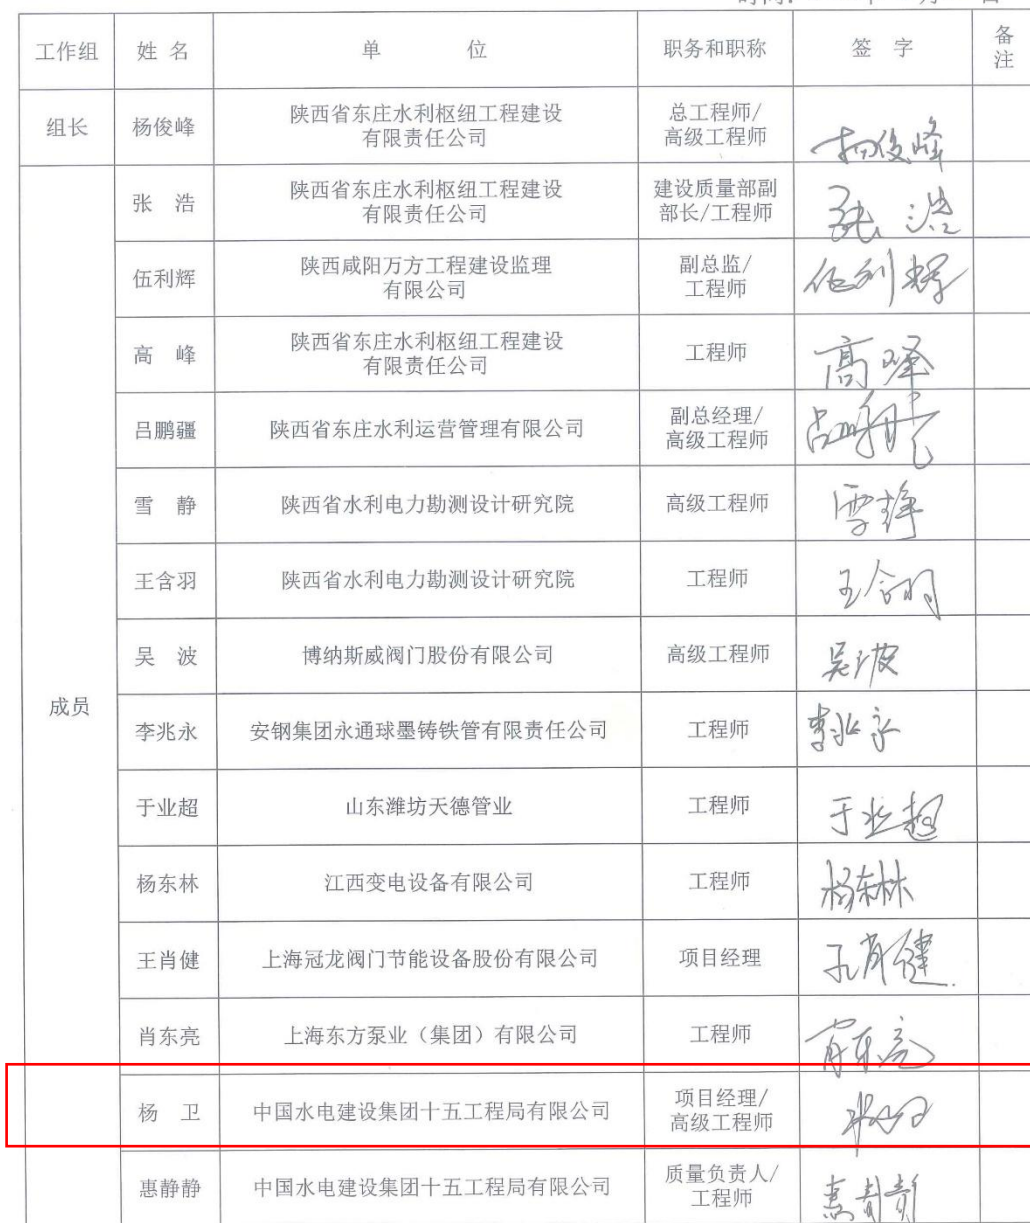 工作组 姓 名 单 位 职务和职称 签 字 备注
组长 杨俊峰 陕西省东庄水利枢纽工程建设有限责任公司 总工程师/高级工程师 杨俊峰
成员
张 浩 陕西省东庄水利枢纽工程建设有限责任公司 建设质量部副部长/工程师 张浩
伍利辉 陕西咸阳万方工程建设监理有限公司 副总监/工程师 伍利辉
高 峰 陕西省东庄水利枢纽工程建设有限责任公司 工程师 高峰
吕鹏疆 陕西省东庄水利运营管理有限公司 副总经理/高级工程师
雪 静 陕西省水利电力勘测设计研究院 高级工程师 雪静
王含羽 陕西省水利电力勘测设计研究院 工程师 王含羽
吴 波 博纳斯威阀门股份有限公司 高级工程师 吴波
李兆永 安钢集团永通球墨铸铁管有限责任公司 工程师 李兆永
于业超 山东潍坊天德管业 工程师 于业超
杨东林 江西变电设备有限公司 工程师 杨东林
王肖健 上海冠龙阀门节能设备股份有限公司 项目经理 王肖健
肖东亮 上海东方泵业（集团）有限公司 工程师 肖东亮
杨 卫 中国水电建设集团十五工程局有限公司 项目经理/高级工程师
惠静静 中国水电建设集团十五工程局有限公司 质量负责人/工程师 惠静静